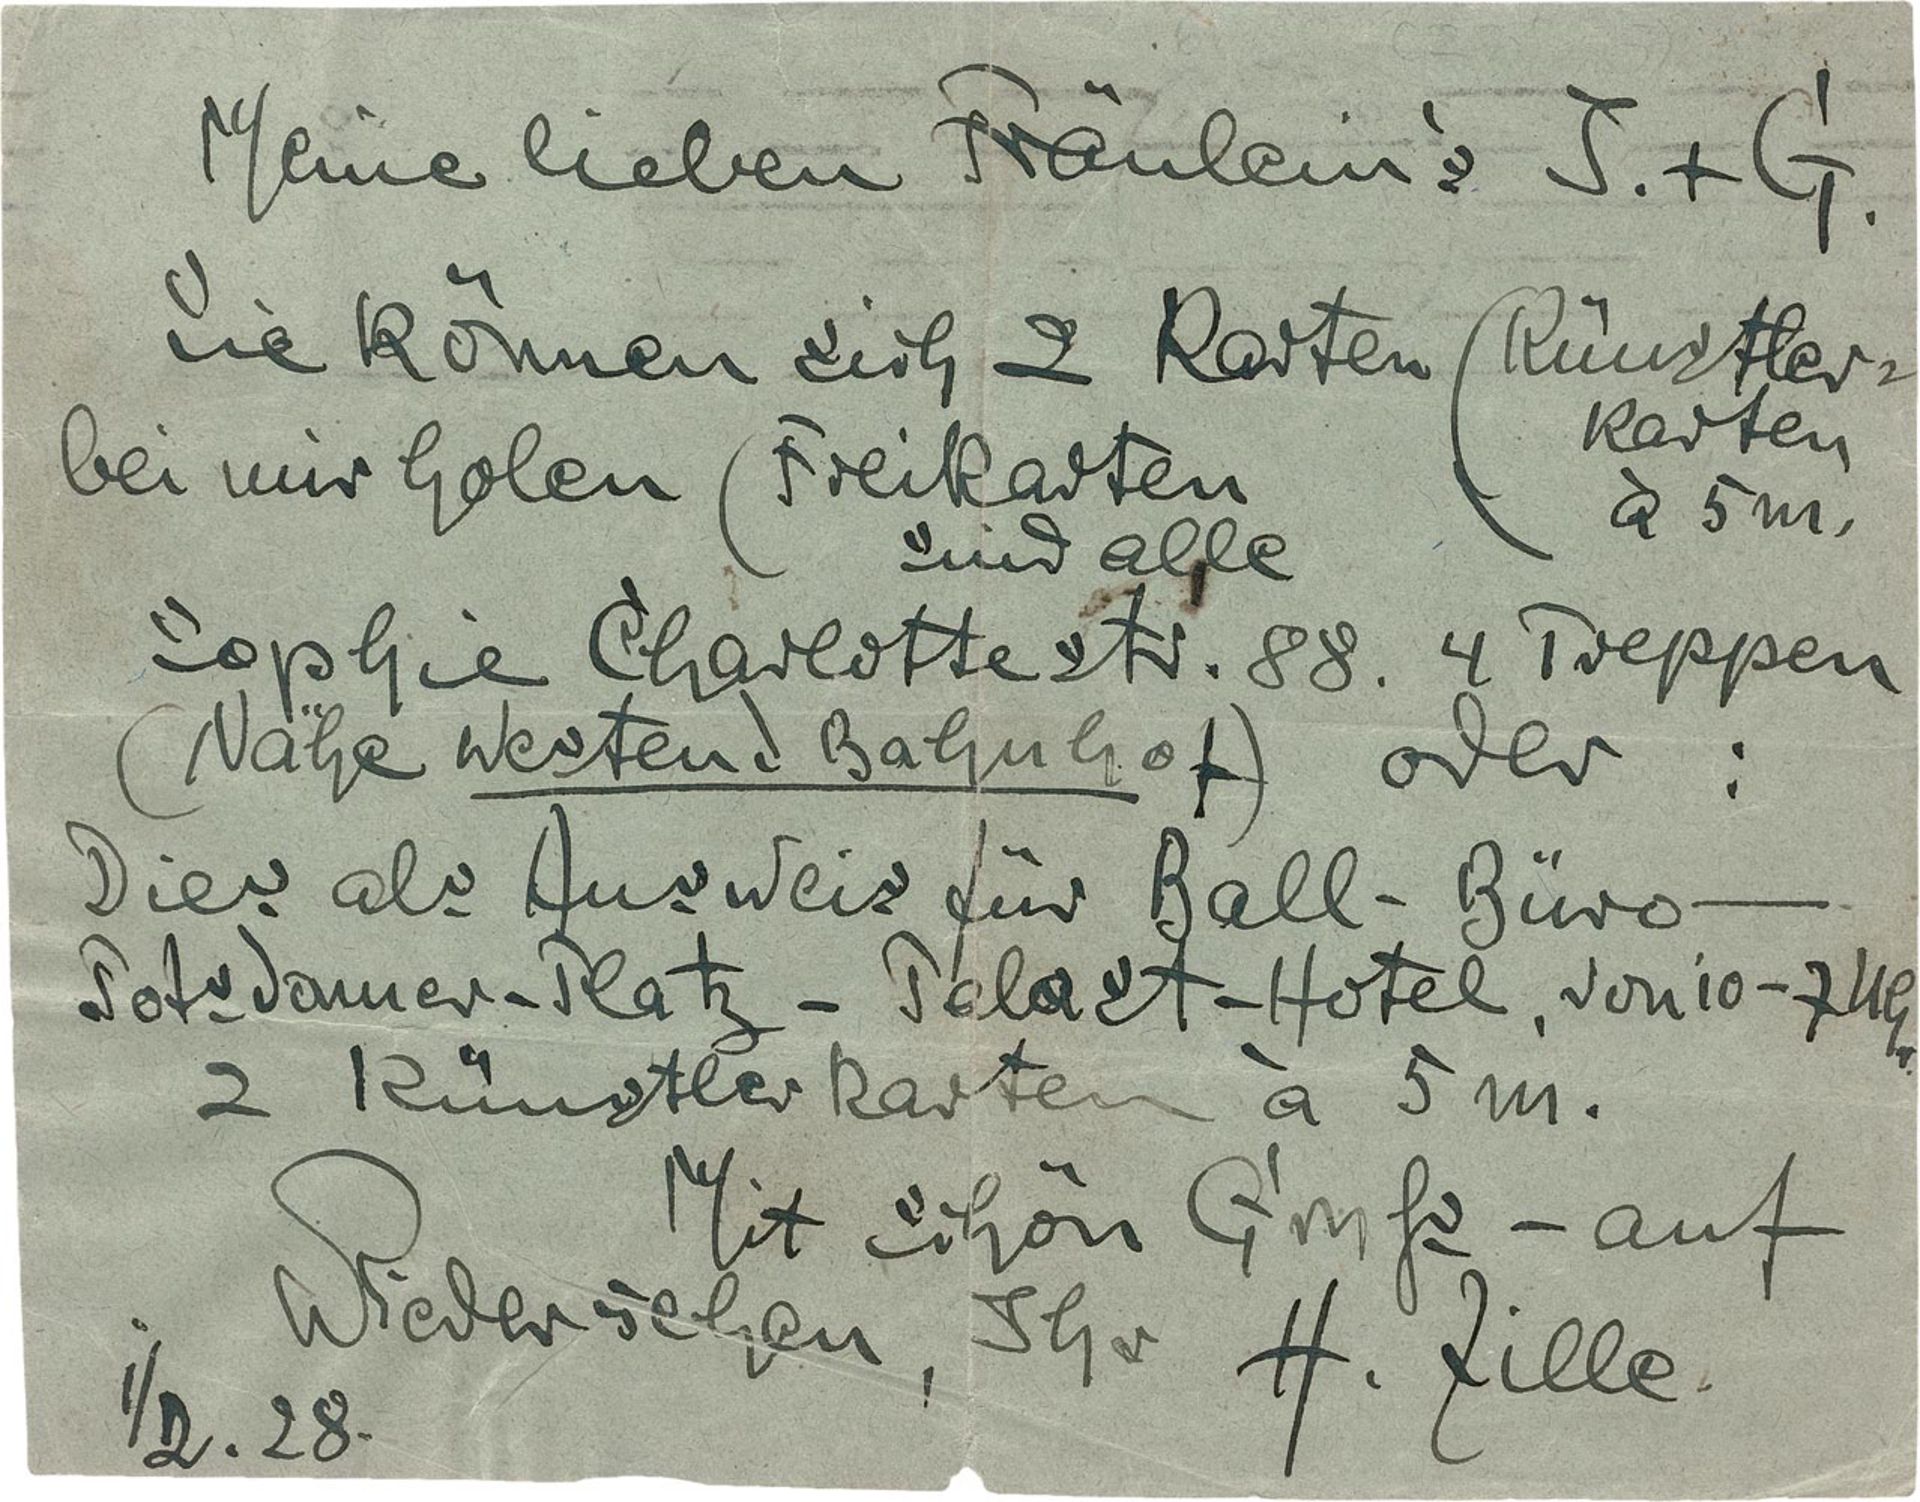 Meine lieben Fräulein's J. + G.
Sie können sich 2 Karten (Künstler-
karten
à 5 M.
bei mir holen (Freikarten
sind alle
Sophie Charlottestr. 88. 4 Treppen
(Nähe Westend Bahnhof) oder :
Dies als Ausweis für Ball-Büro —
Potsdamer-Platz - Palast-Hotel, von 10-7 Uh.
2 Künstlerkarten à 5 M.
Mit schön Gruß - auf
Wiedersehen, Ihr H. Zille.
1/2. 28.